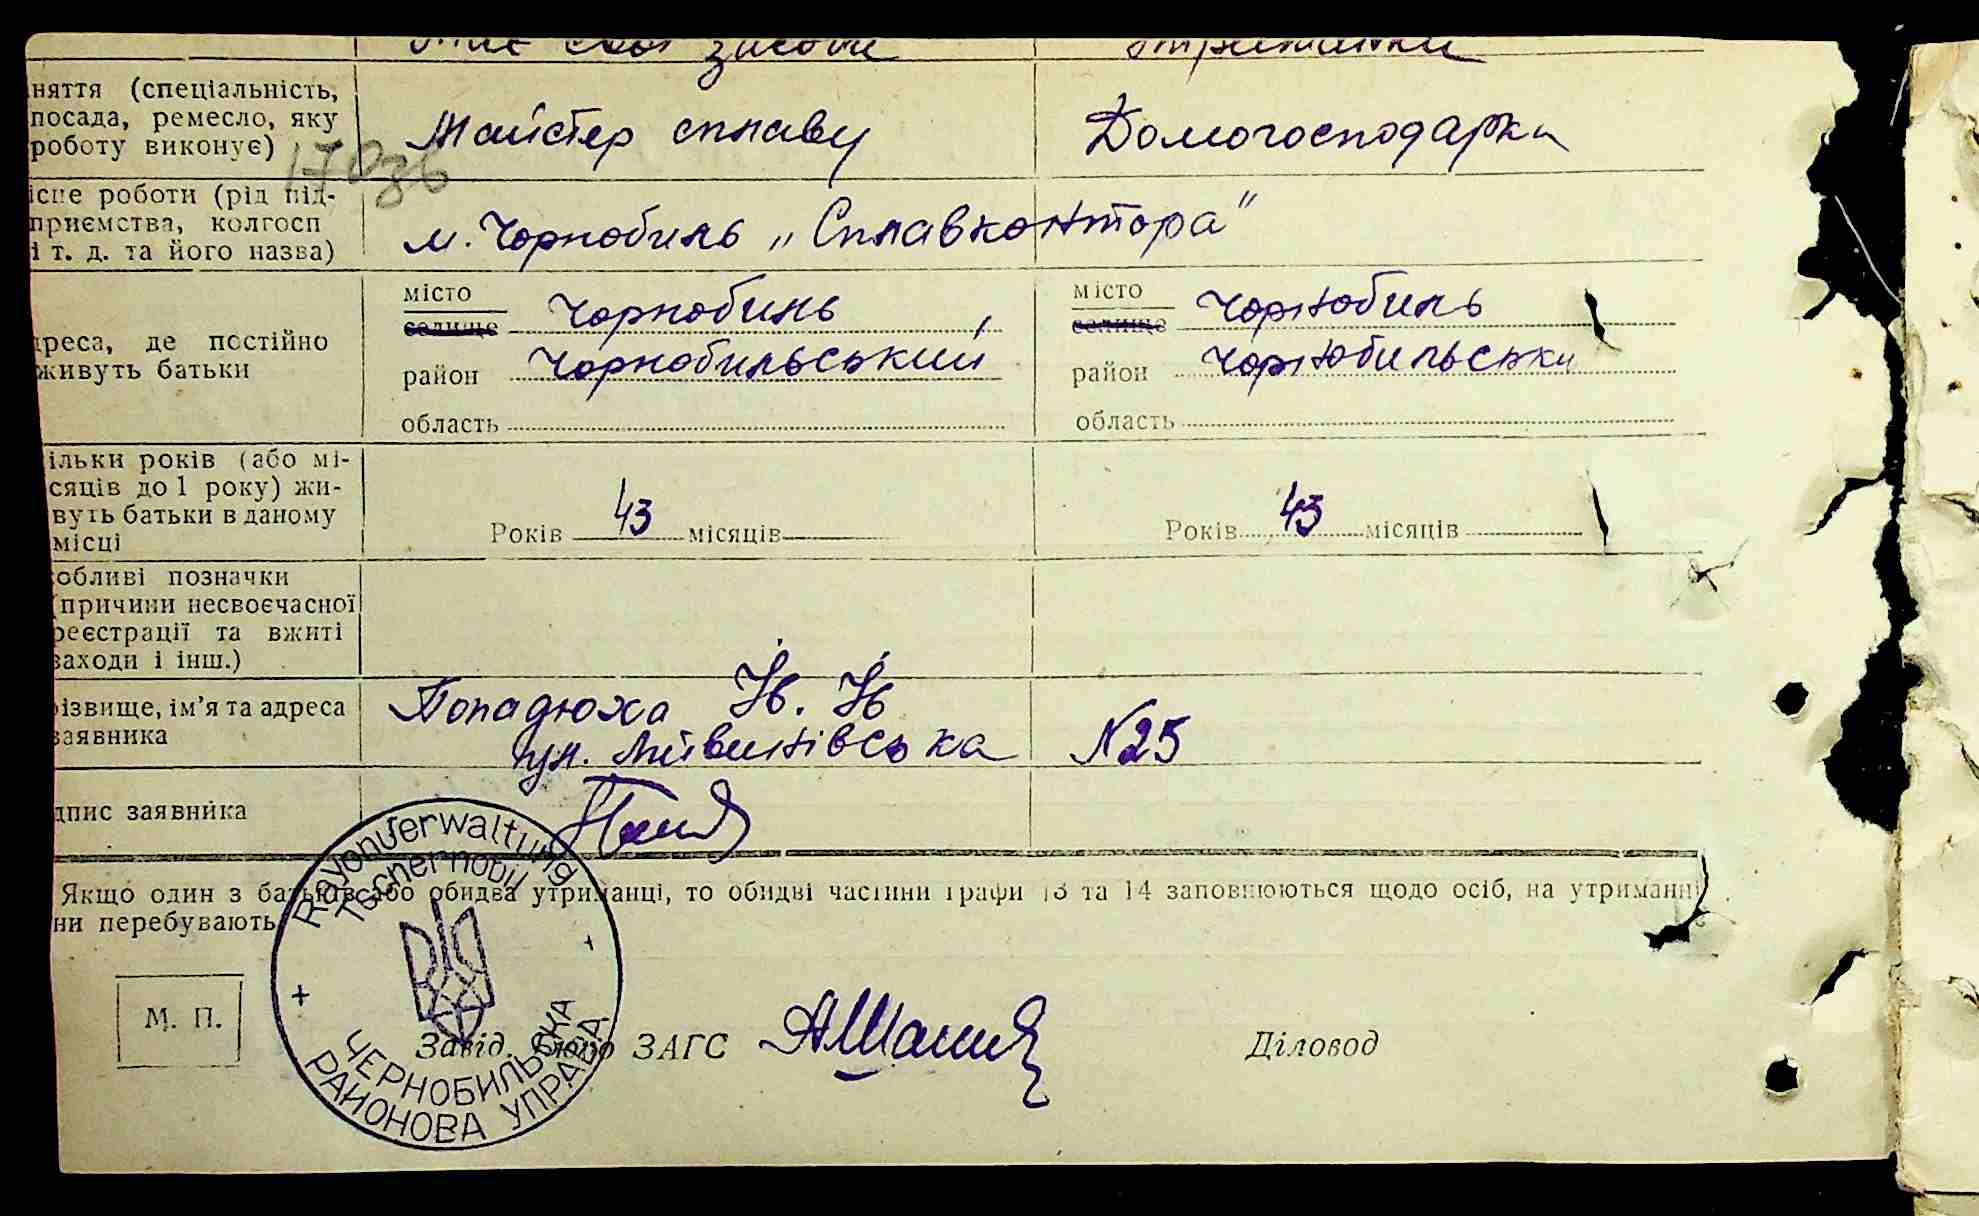 Має свої засоби
няття (спеціальність, посада, ремесло, яку роботу виконує)
Майстер сплаву
Домогосподарка
ісце роботи (рід під-
приємства, колгосп
і т. д. та його назва)
м. Чорнобиль „Сплавконтора"
дреса, де постійно
живуть батьки
місто
селище
Чорнобиль
район Чорнобильський
область
місто
селище
Чорнобиль
район Чорнобильськи
область
ільки років (або мі-
сяців до 1 року) жи-
вуть батьки в даному
місці
Років 43 місяців
Років 43 місяців
обливі позначки
(причини несвоєчасної
реєстрації та вжиті
заходи і інш.)
різвище, ім'я та адреса
заявника
Попадюха Ів. Ів
ул. N 25
дпис заявника
Якщо один з батьків або обидва утриманці, то обидві частини графи 13 та 14 заповнюються щодо осіб, на утриманні
ни перебувають
Rayonverwaltung
Tschernobil
ЧЕРНОБИЛЬСЬКА
РАЙОНОВА УПРАВА
М. П.
Завід. Бюро ЗАГС
Діловод